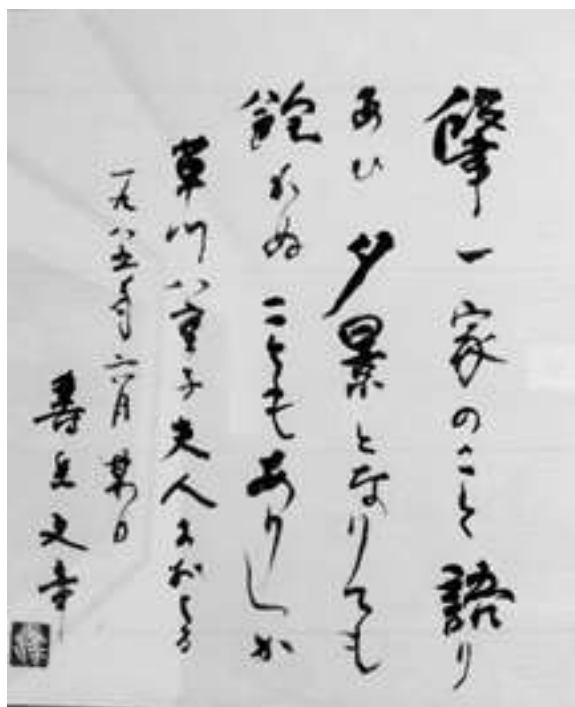 肇一家のこと語り
あひ夕景となりても
飽かぬこともありしか
草川八重子夫人におくる
一九八五年六月某日
壽岳文章